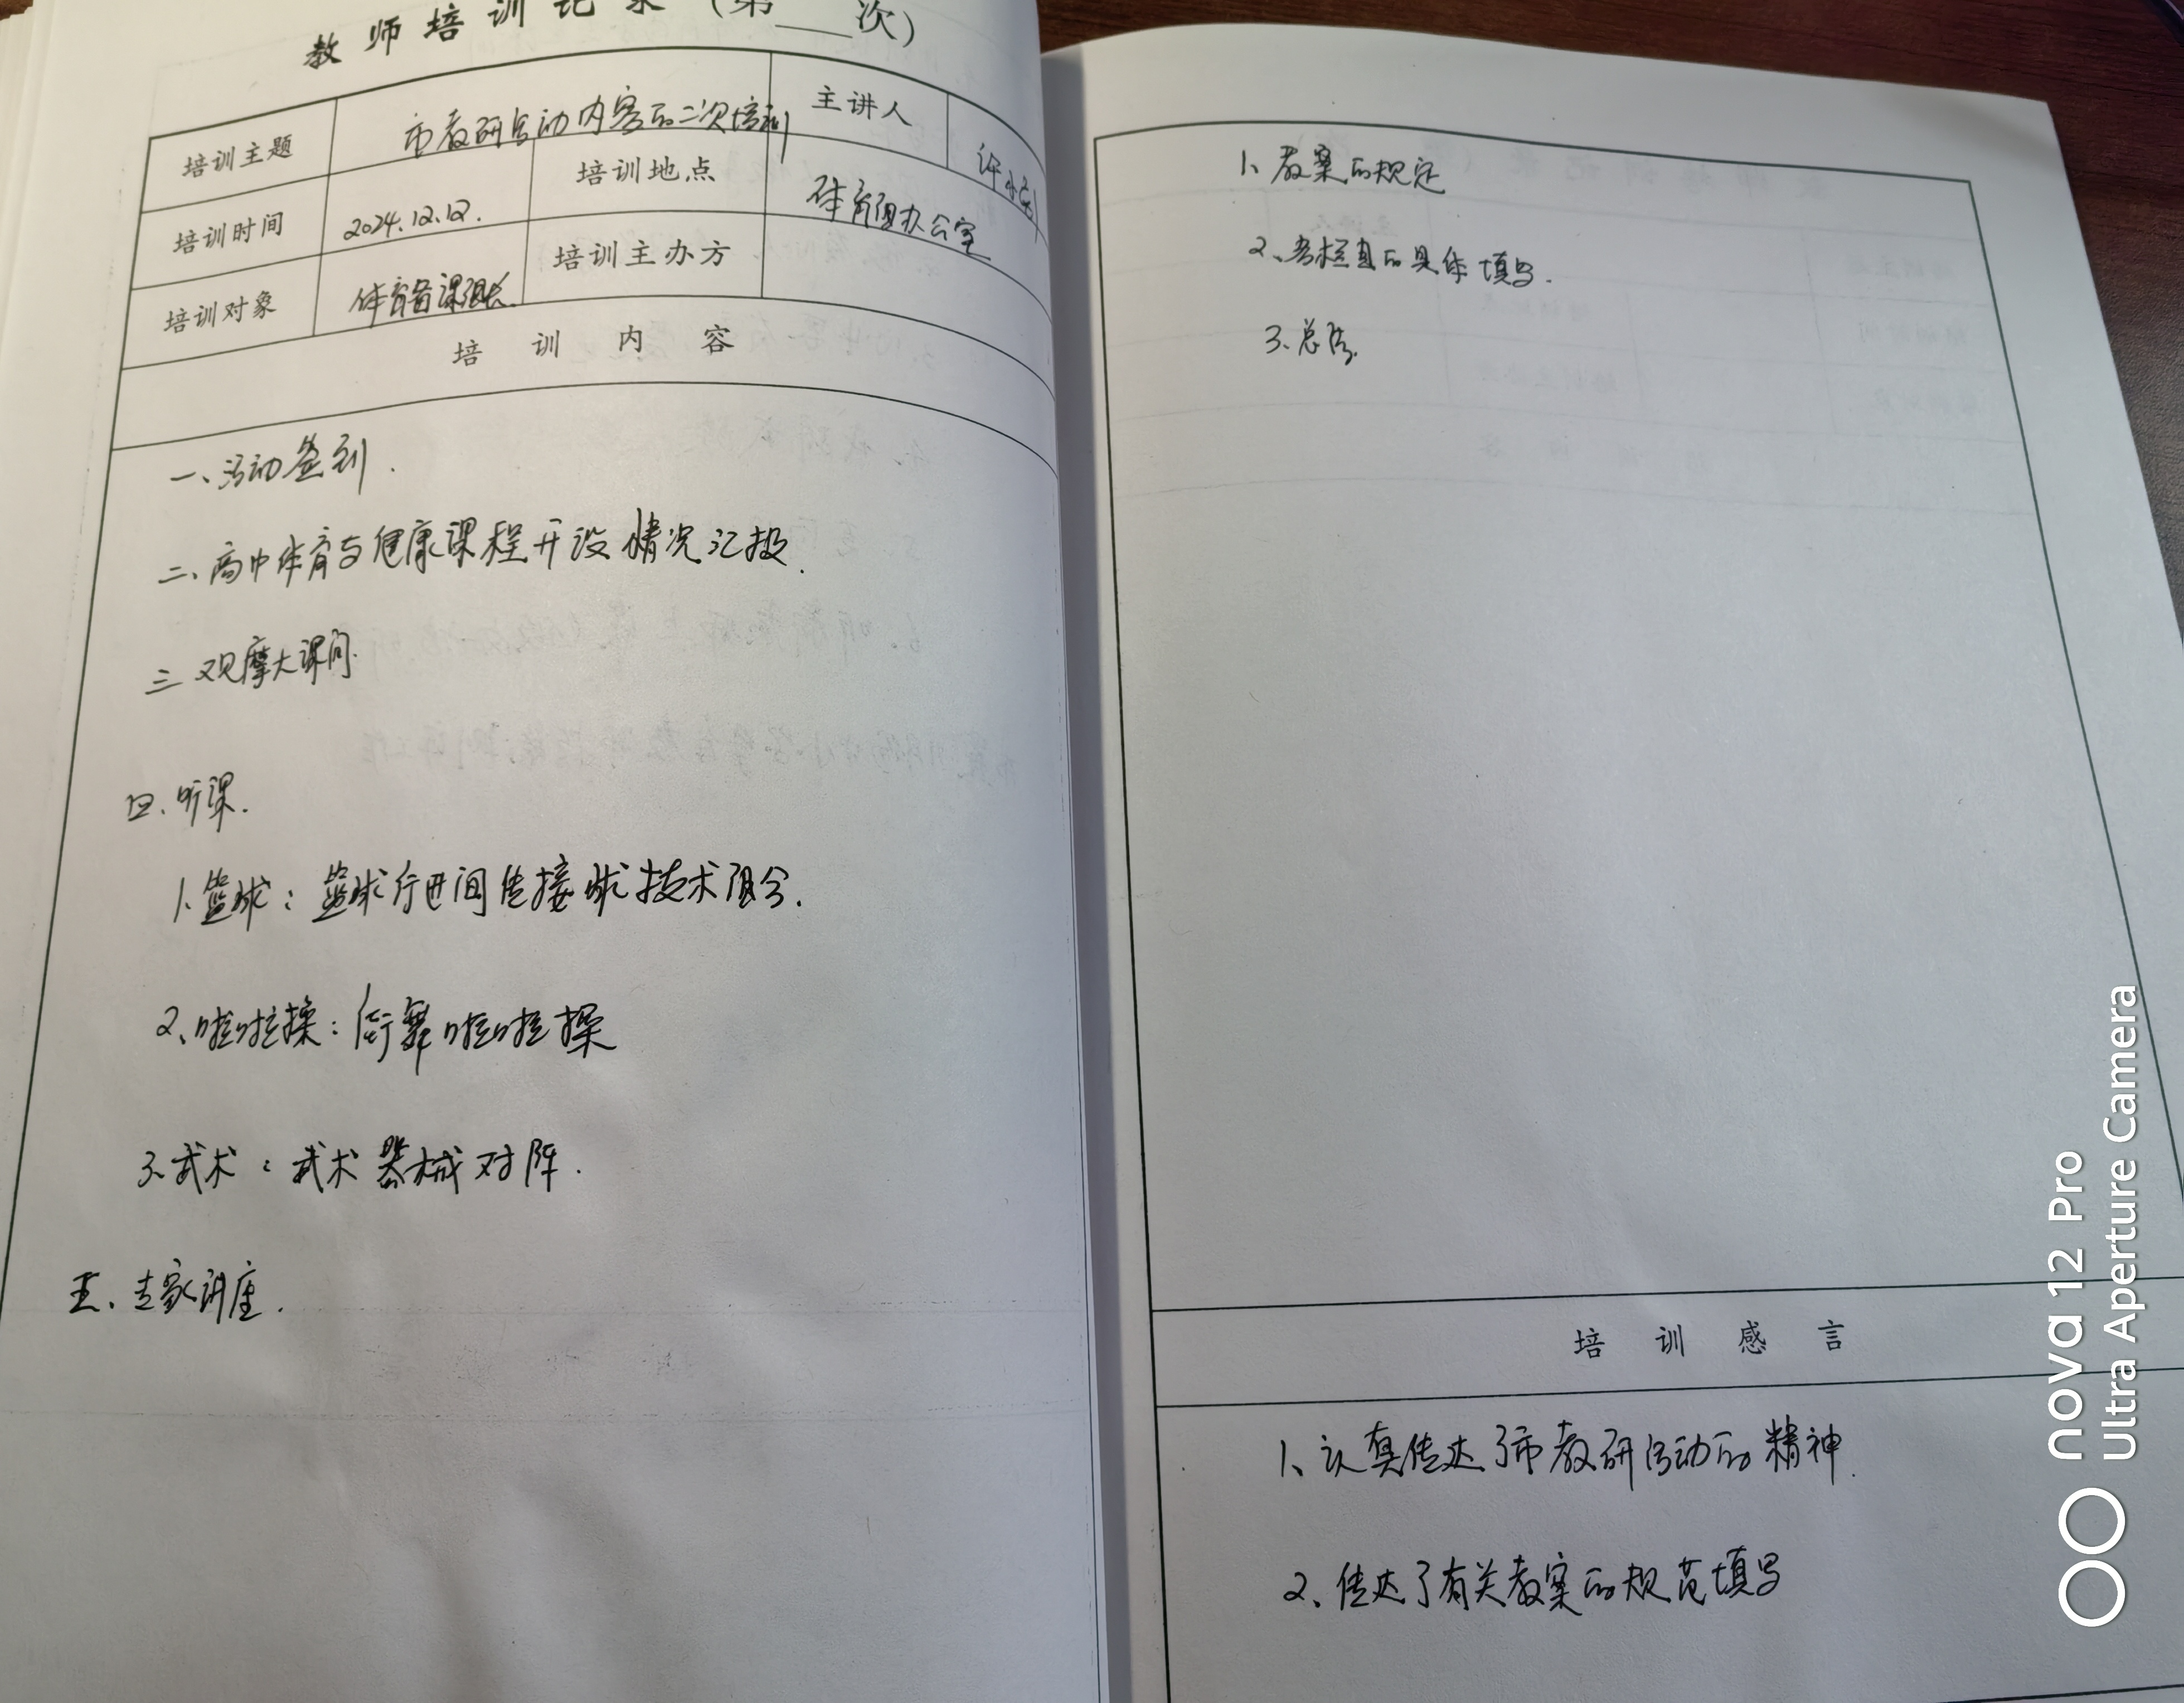 教师培训记录（第___次）
培训主题 市教研活动内容的二次培训 主讲人
培训时间 2024.12.12. 培训地点 体育组办公室
培训对象 体育备课组长 培训主办方
培训内容
一、活动签到.
二、高中体育与健康课程开设情况汇报.
三 观摩大课间.
四.听课.
1.篮球：篮球行进间传接球技术组合.
2、啦啦操：街舞啦啦操
3.武术：武术器械对阵.
五、专家讲座.
1、教案的规定
2、各栏目的具体填写.
3、总结.
培训感言
1、认真传达了市教研活动的精神.
2、传达了有关教案的规范填写
nova 12 Pro
Ultra Aperture Camera